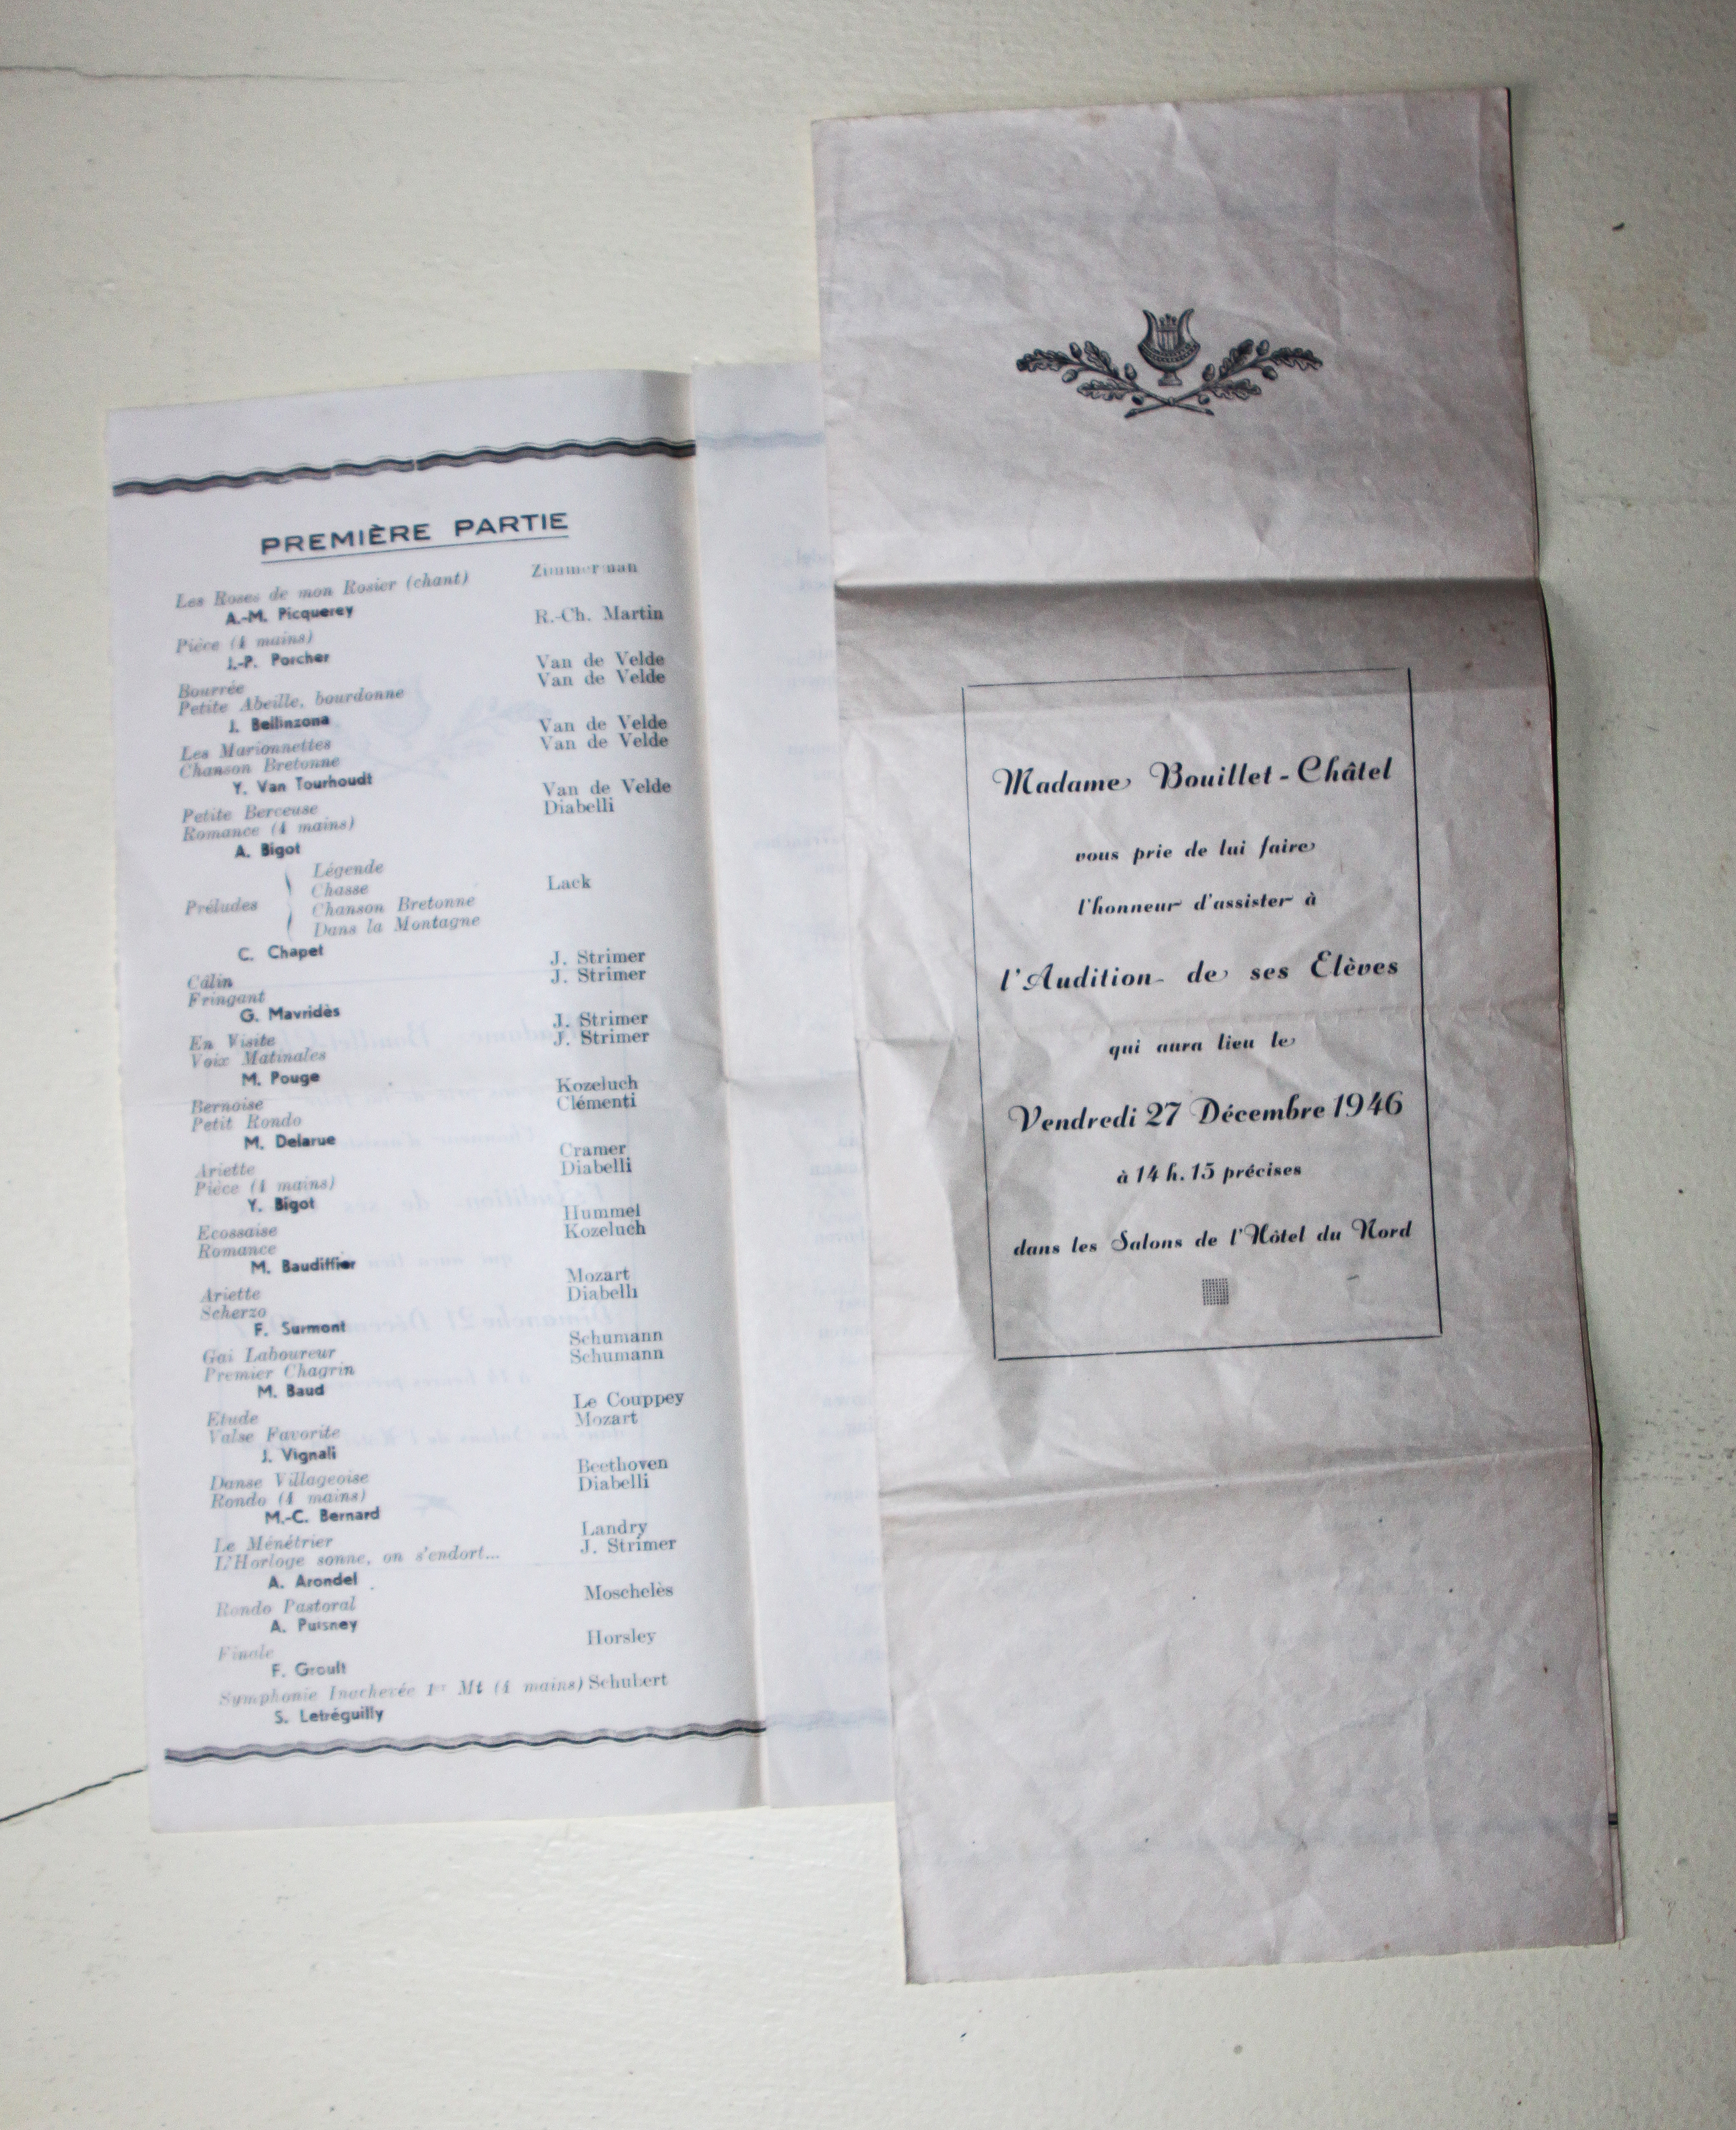 PREMIÈRE PARTIE
Les Roses de mon Rosier (chant) Zimmerman
A.-M. Picquerey
Pièce (4 mains) R.-Ch. Martin
J.-P. Porcher
Bourrée Van de Velde
Petite Abeille, bourdonne Van de Velde
J. Bellinzona
Les Marionnettes Van de Velde
Chanson Bretonne Van de Velde
Y. Van Tourhoudt
Petite Berceuse Van de Velde
Romance (4 mains) Diabelli
A. Bigot
Préludes Légende Lack
Chasse
Chanson Bretonne
Dans la Montagne
C. Chapet
Câlin J. Strimer
Fringant J. Strimer
G. Mavridès
En Visite J. Strimer
Voix Matinales J. Strimer
M. Pouge
Bernoise Kozeluch
Petit Rondo Clémenti
M. Delarue
Ariette Cramer
Pièce (4 mains) Diabelli
Y. Bigot
Ecossaise Hummel
Romance Kozeluch
M. Baudiffier
Ariette Mozart
Scherzo Diabelli
F. Surmont
Gai Laboureur Schumann
Premier Chagrin Schumann
M. Baud
Etude Le Couppey
Valse Favorite Mozart
J. Vignali
Danse Villageoise Beethoven
Rondo (4 mains) Diabelli
M.-C. Bernard
Le Ménétrier Landry
L'Horloge sonne, on s'endort... J. Strimer
A. Arondel
Rondo Pastoral Moschelès
A. Puisney
Finale Horsley
F. Groult
Symphonie Inachevée 1er Mt (4 mains) Schubert
S. Letréguilly
Madame Bouillet-Châtel
vous prie de lui faire
l'honneur d'assister à
l'Audition de ses Elèves
qui aura lieu le
Vendredi 27 Décembre 1946
à 14 h. 15 précises
dans les Salons de l'Hôtel du Nord